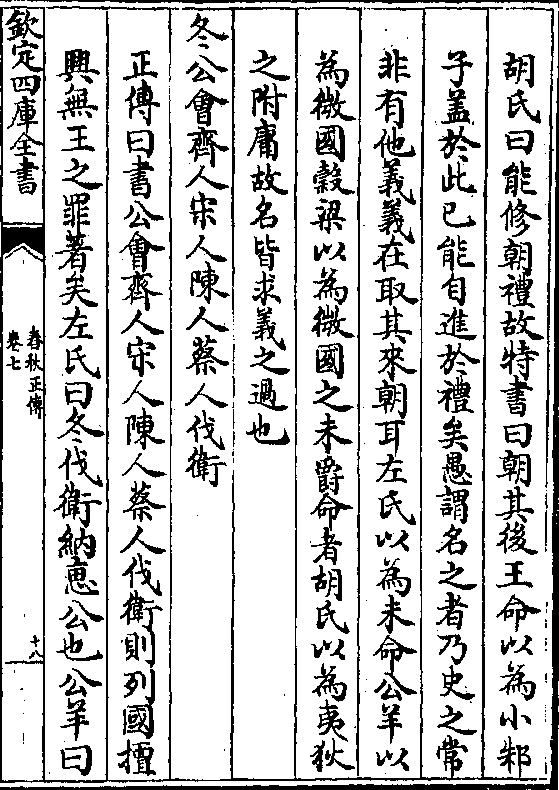 胡氏曰能修朝禮故特書曰朝其後王命以為小邾
子盖於此已能自進於禮矣愚謂名之者乃史之常
非有他義義在取其來朝耳左氏以為未命公羊以
為微國糓梁以為微國之未爵命者胡氏以為夷狄
之附庸故名皆求義之過也
冬公會齊人宋人陳人蔡人伐衛
正傳曰書公會齊人宋人陳人蔡人伐衛則列國擅
興無王之罪著矣左氏曰冬伐衛納恵公也公羊曰
欽定四庫全書
春秋正傳
卷七
十八